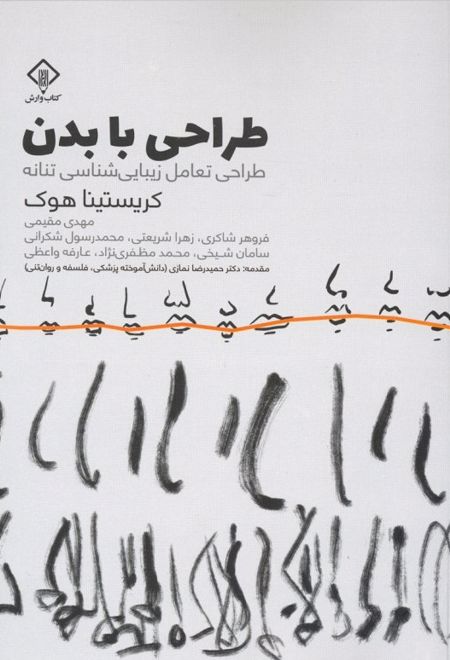 کتاب وارش
طراحی با بدن
طراحی تعامل زیبایی‌شناسی تنانه
کریستینا هوک
مهدی مقیمی
فروهر شاکری، زهرا شریعتی، محمدرسول شکرانی
سامان شیخی، محمد مظفری‌نژاد، عارفه واعظی
مقدمه: دکتر حمیدرضا نمازی (دانش‌آموخته پزشکی، فلسفه و روان‌تنی)